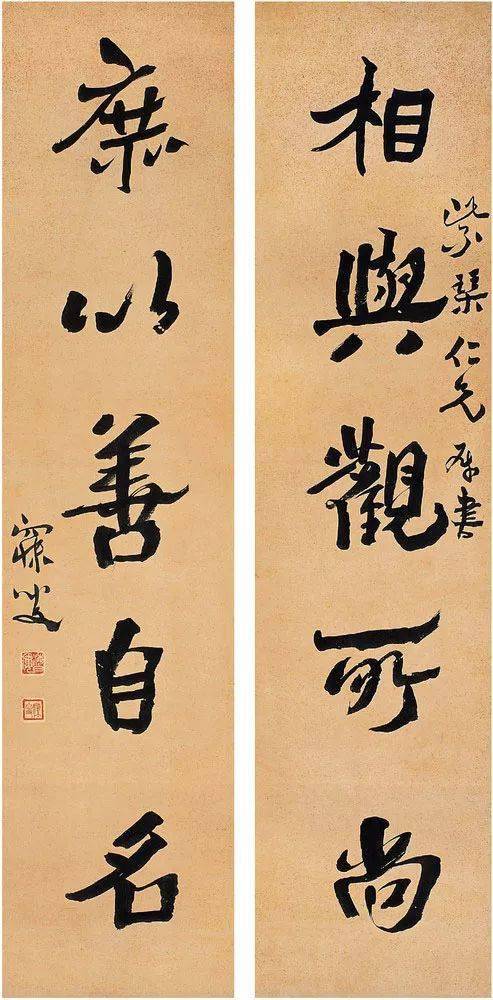 紫琹仁兄屬書
相與觀所尚
庶以善自名
寐叟